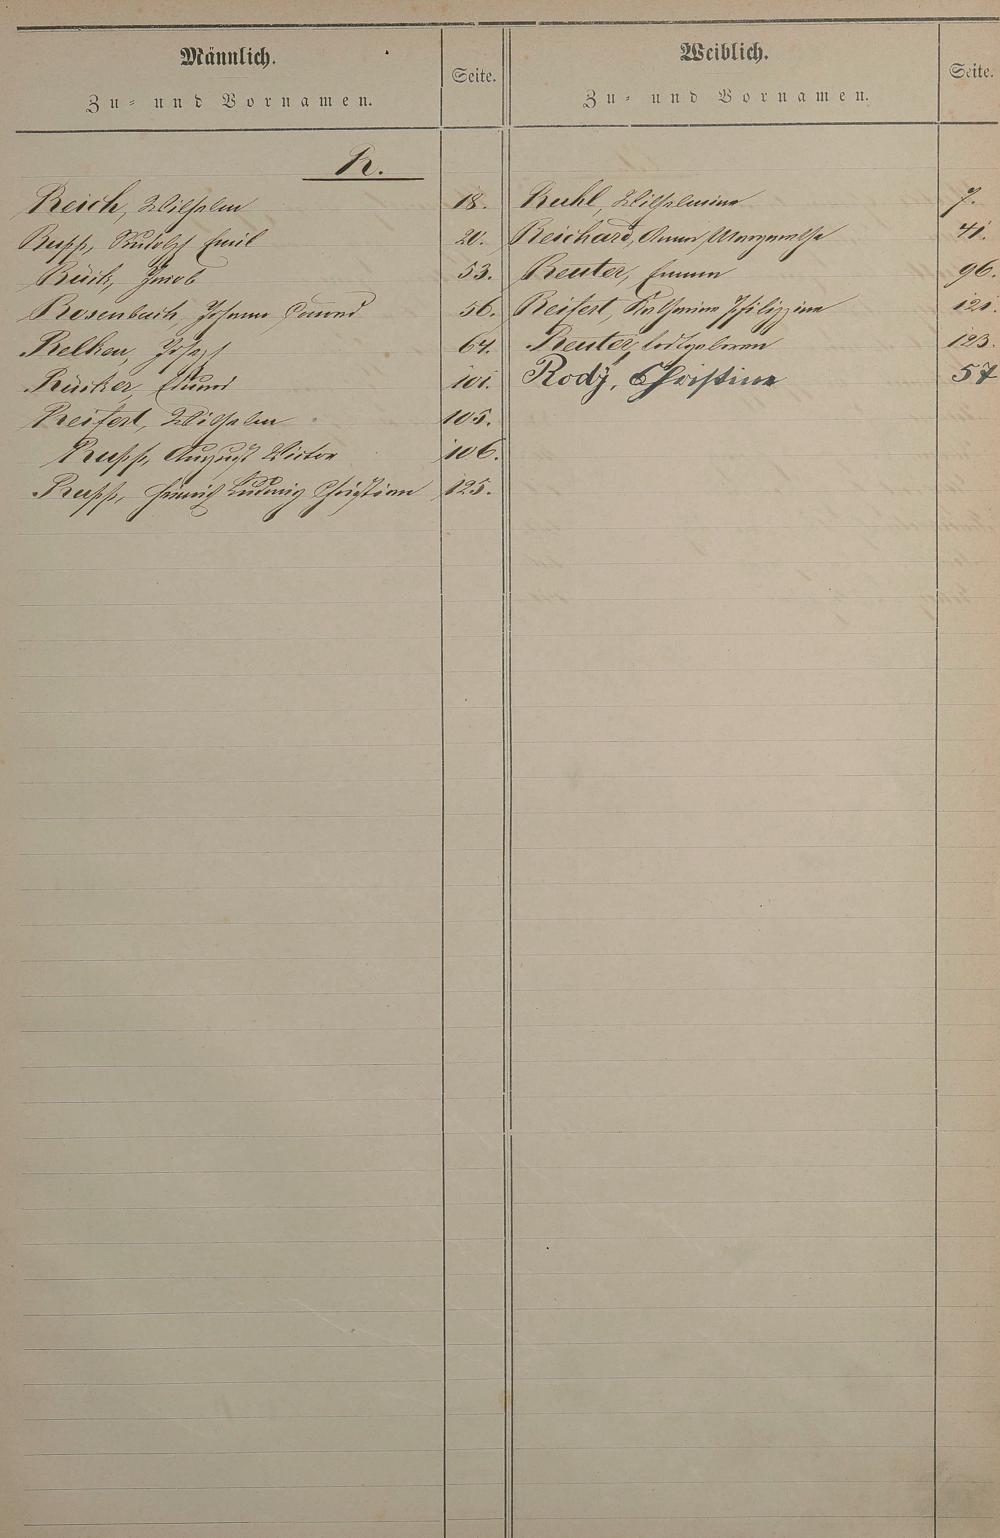 Männlich.
Zu- und Vornamen.
Seite.
R.
Reich, Wilhelm 18.
Rupp, Rudolf Emil 20.
Rück, Jacob 53.
Rosenbach, Johann Conrad 56.
Relken, Josef 64.
Rücker, Eduard 101.
Reifert, Wilhelm 105.
Rupp, August Victor 106.
Rupp, Heinrich Ludwig Christian 125.
Weiblich.
Zu- und Vornamen.
Seite.
Ruhl, Wilhelmine 7.
Reichard, Anna Margarethe 41.
Reuter, Emma 96.
Reifert, Katharine Philippine 121.
Reuter, todtgeboren 123.
Rody, Christine 57